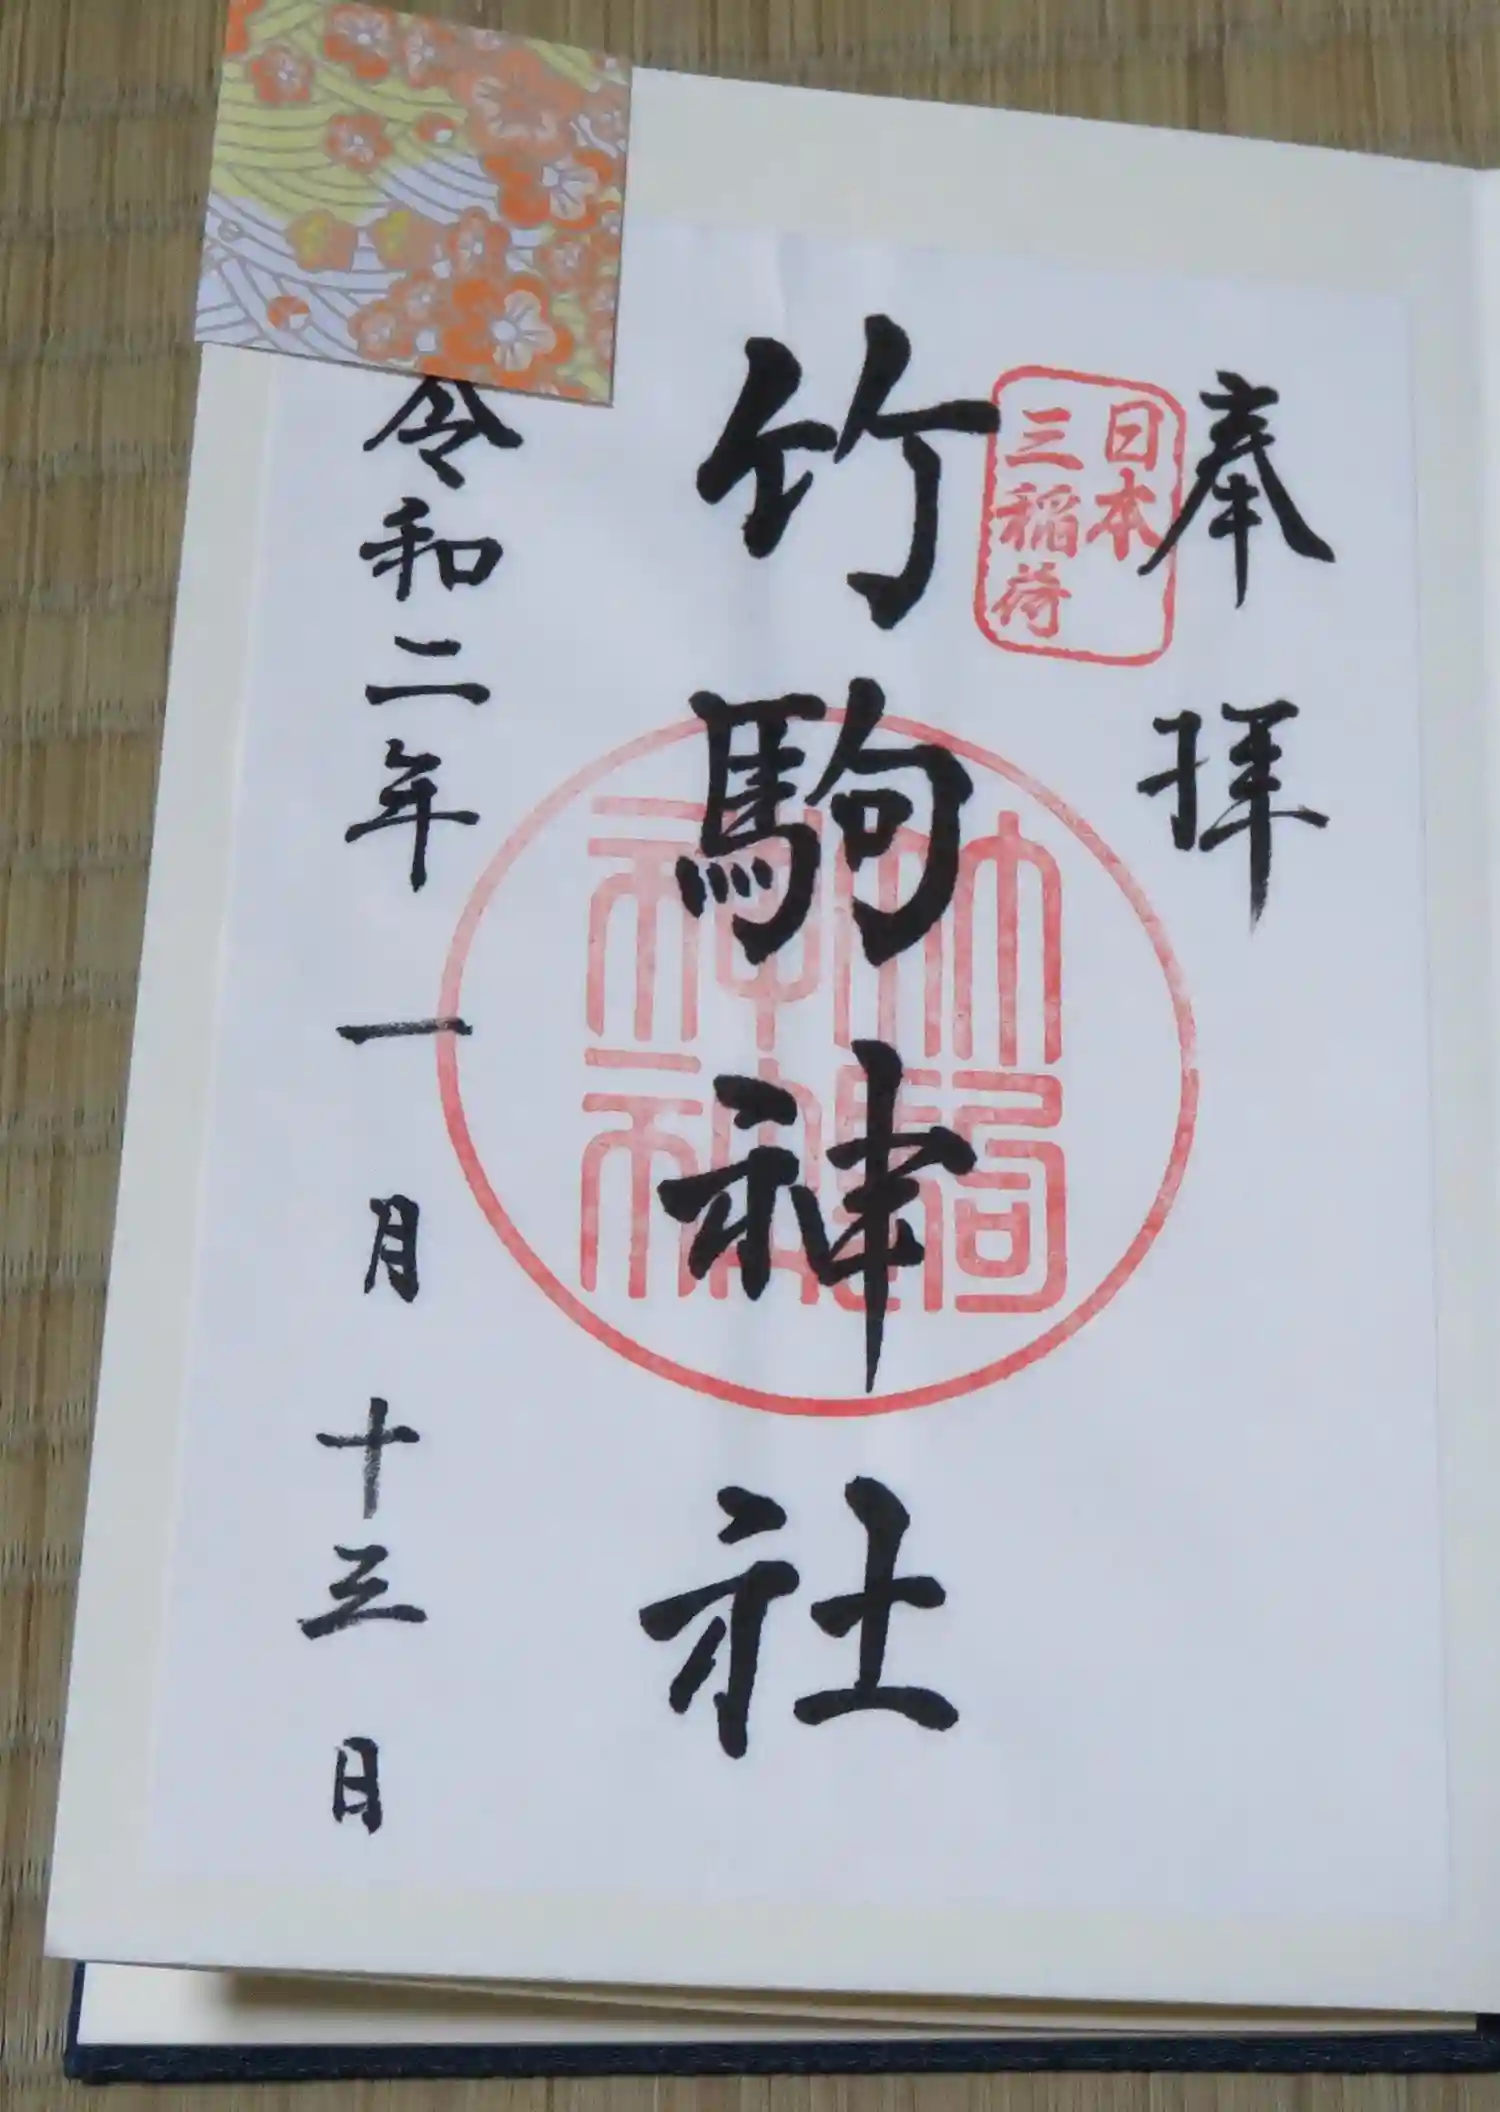 奉拝
日本
三稲荷
竹駒神社
竹駒
神社
令和二年一月十三日